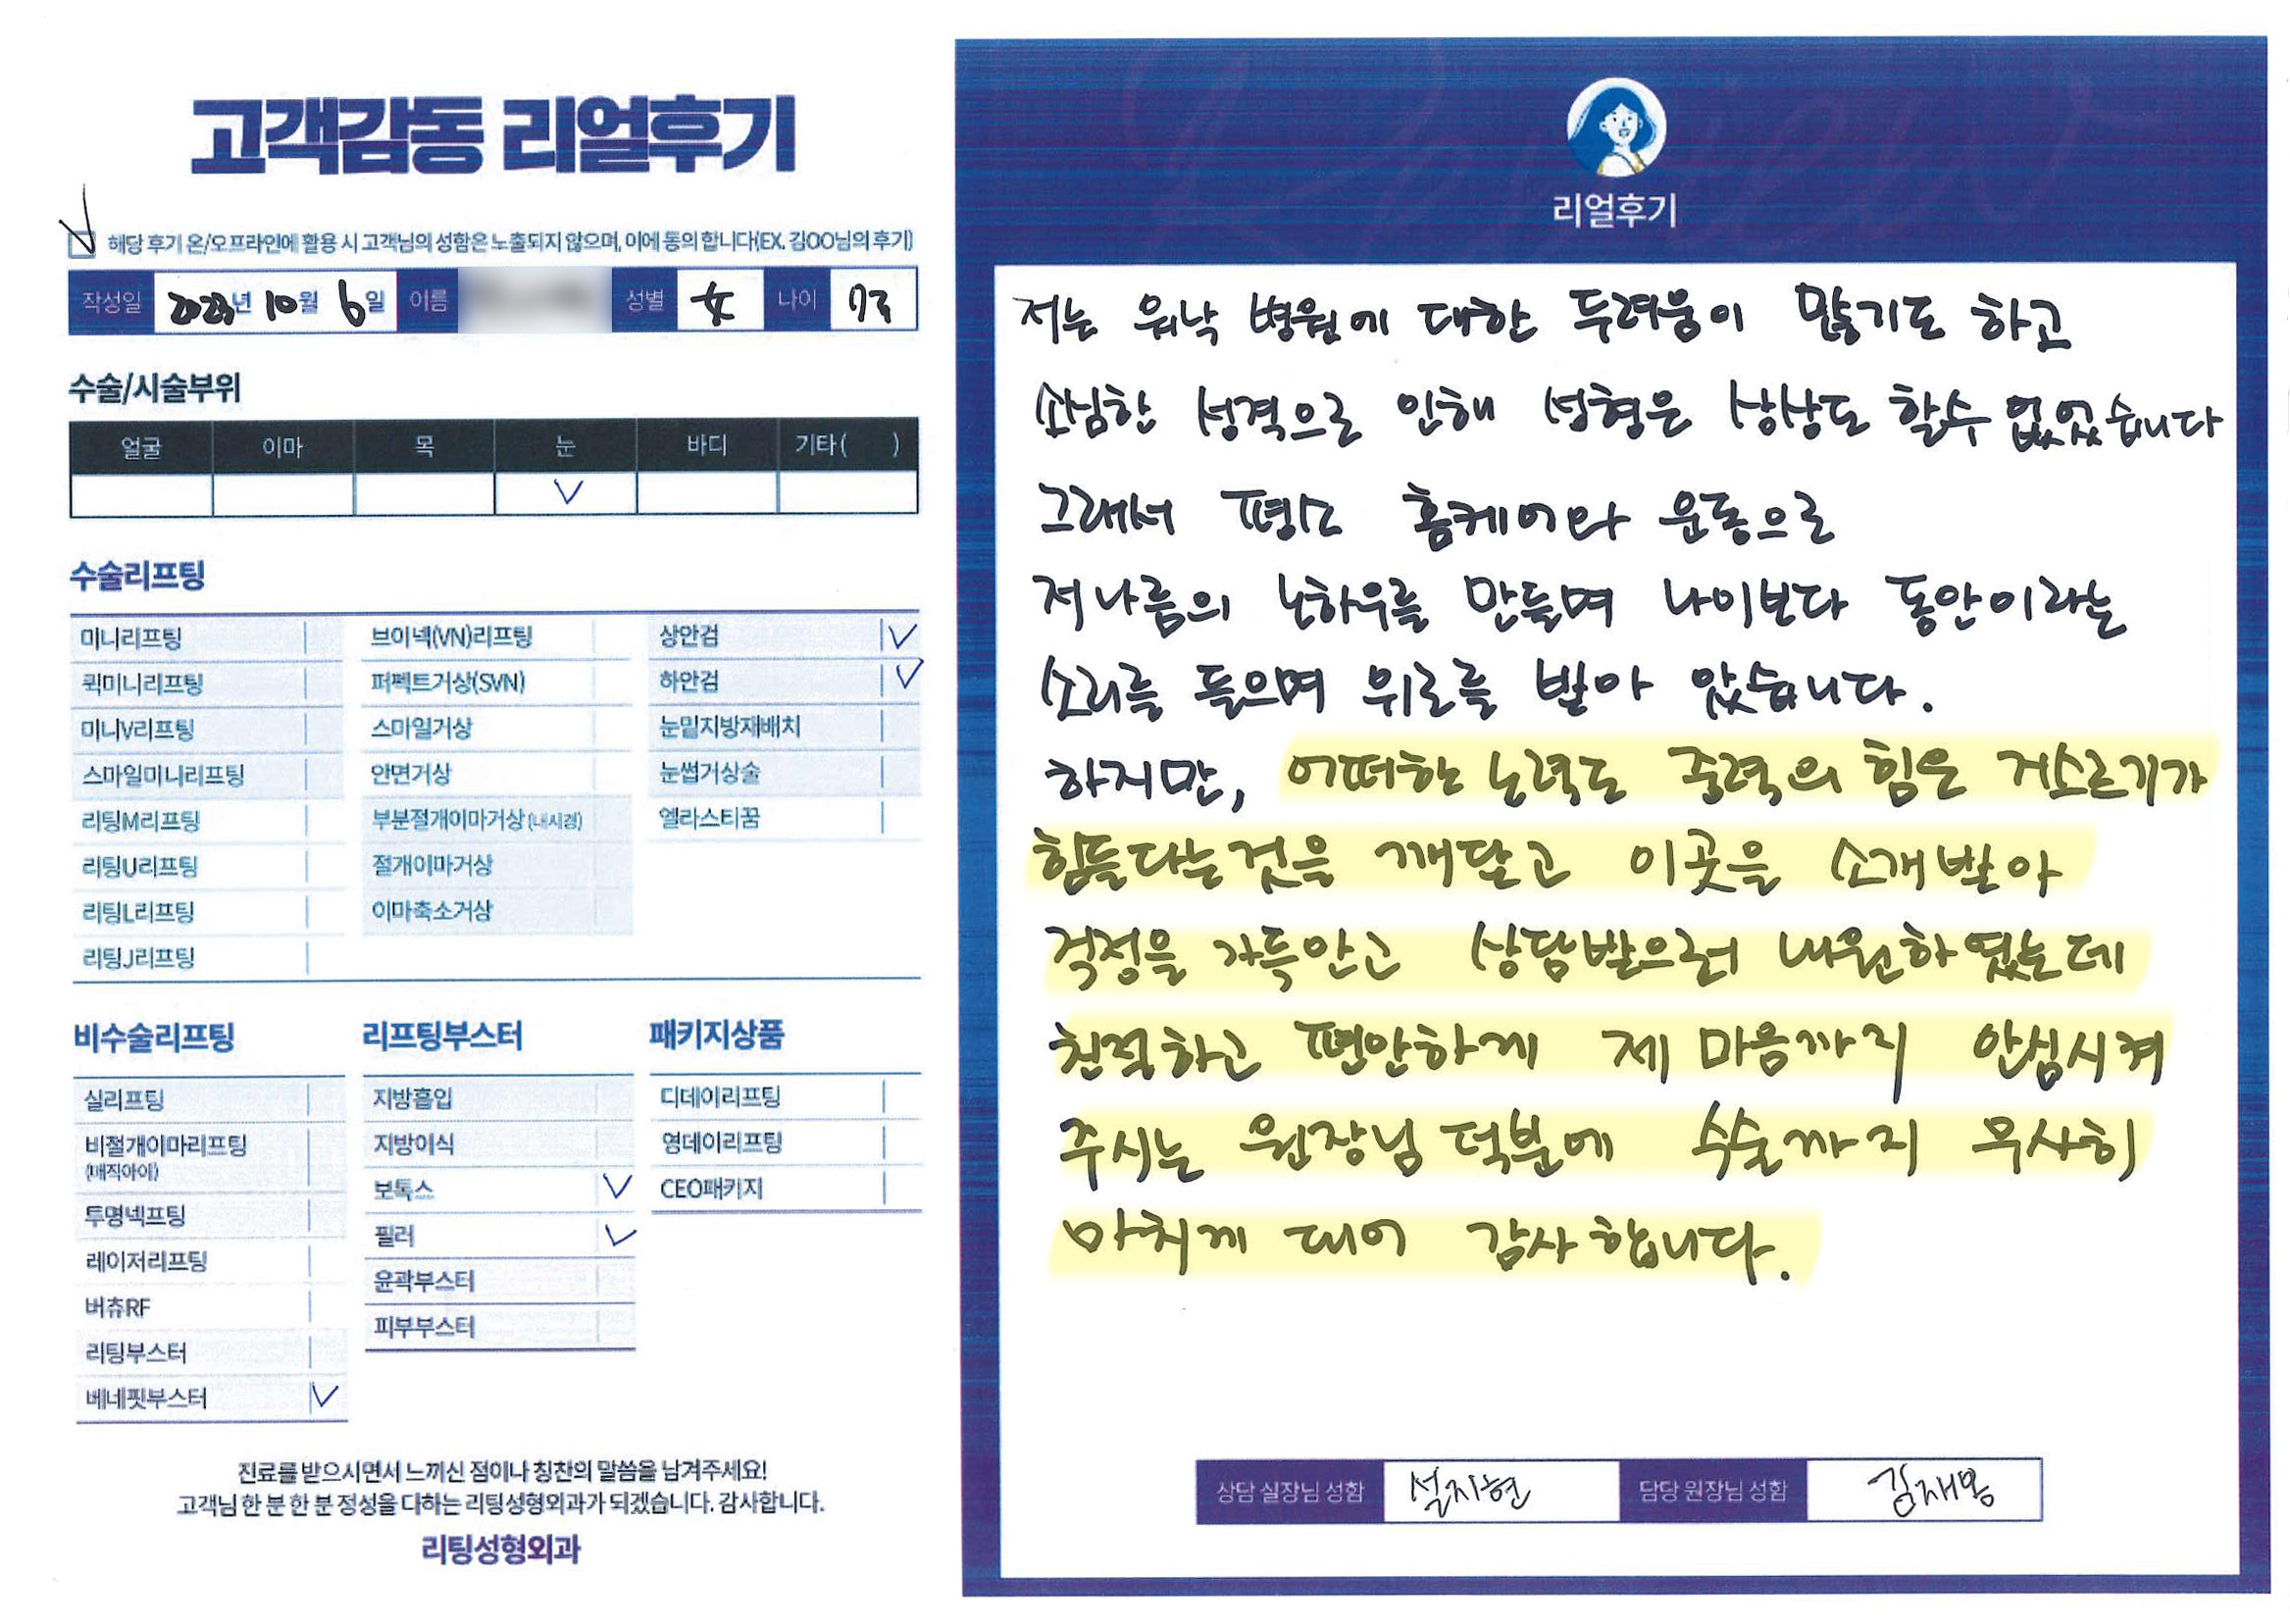 고객감동 리얼후기
해당 후기 온/오프라인에 활용 시 고객님의 성함은 노출되지 않으며, 이에 동의 합니다(EX. 김OO님의 후기)
작성일 2023년 10월 6일 이름 성별 女 나이
수술/시술부위
얼굴 이마 목 눈 바디 기타( )
수술리프팅
미니리프팅 브이넥(VN)리프팅 상안검
퀵미니리프팅 퍼펙트거상(SVN) 하안검
미니V리프팅 스마일거상 눈밑지방재배치
스마일미니리프팅 안면거상 눈썹거상술
리팅M리프팅 부분절개이마거상(내시경) 엘라스티꿈
리팅U리프팅 절개이마거상
리팅L리프팅 이마축소거상
리팅J리프팅
비수술리프팅 리프팅부스터 패키지상품
실리프팅 지방흡입 디데이리프팅
비절개이마리프팅 지방이식 영데이리프팅
(매직아이) 보톡스 CEO패키지
투명넥프팅 필러
레이저리프팅 윤곽부스터
버츄RF 피부부스터
리팅부스터
베네핏부스터
진료를 받으시면서 느끼신 점이나 칭찬의 말씀을 남겨주세요!
고객님 한 분 한 분 정성을 다하는 리팅성형외과가 되겠습니다. 감사합니다.
리팅성형외과
리얼후기
저는 워낙 병원에 대한 두려움이 많기도 하고
소심한 성격으로 인해 성형은 상상도 할수 없었습니다
그래서 평소 홈케어와 운동으로
저 나름의 노하우를 만들며 나이보다 동안이라는
소리를 들으며 위로를 받아 왔습니다.
하지만, 어떠한 노력도 중력의 힘은 거스르기가
힘들다는것을 깨닫고 이곳을 소개받아
걱정을 가득안고 상담받으러 내원하였는데
친절하고 편안하게 제 마음까지 안심시켜
주시는 원장님 덕분에 수술까지 무사히
마치게 되어 감사합니다.
상담 실장님 성함 설지현 담당 원장님 성함 김재용